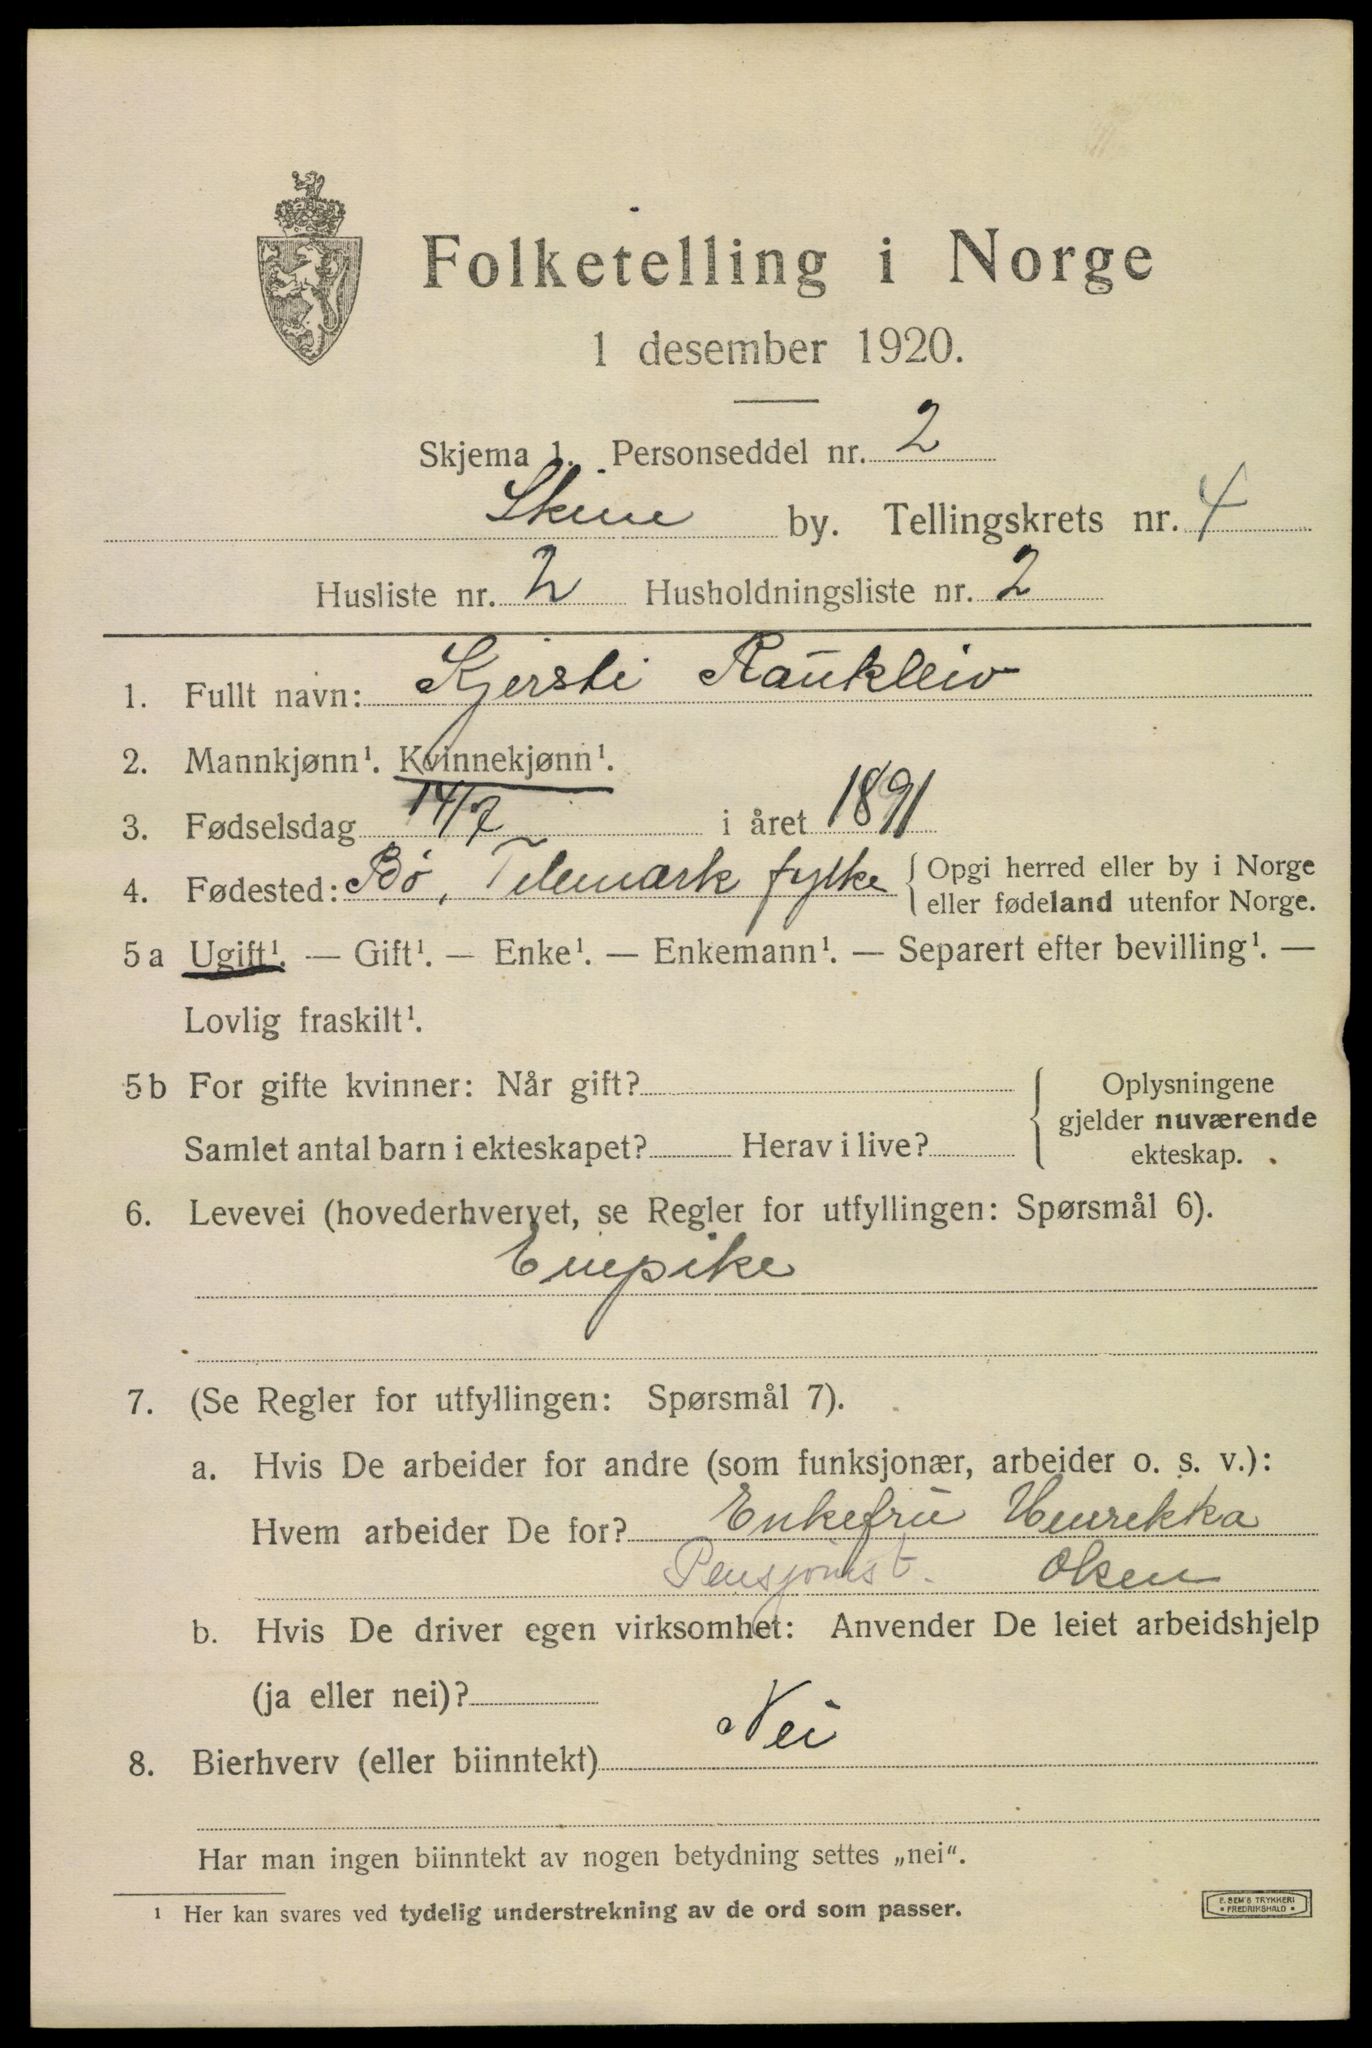 Folketelling i Norge
1 desember 1920.
Skjema 1. Personseddel nr. 2
Skien by. Tellingskrets nr. 4
Husliste nr. 2 Husholdningsliste nr. 2
1. Fullt navn: Kjersti Raukleiv
2. Mannkjønn¹. Kvinnekjønn¹.
3. Fødselsdag 14/7 i året 1891
4. Fødested: Bø, Telemark fylke { Opgi herred eller by i Norge
eller fødeland utenfor Norge.
5a Ugift¹. — Gift¹. — Enke¹. — Enkemann¹. — Separert efter bevilling¹. —
Lovlig fraskilt¹.
5b For gifte kvinner: Når gift?
Samlet antal barn i ekteskapet? Herav i live?
{ Oplysningene
gjelder nuværende
ekteskap.
6. Levevei (hovederhvervet, se Regler for utfyllingen: Spørsmål 6).
Enepike
7. (Se Regler for utfyllingen: Spørsmål 7).
a. Hvis De arbeider for andre (som funksjonær, arbeider o. s. v.):
Hvem arbeider De for? Enkefru Henrekka
Pensjonist. Olsen
b. Hvis De driver egen virksomhet: Anvender De leiet arbeidshjelp
(ja eller nei)?
8. Bierhverv (eller biinntekt) Nei
Har man ingen biinntekt av nogen betydning settes „nei“.
¹ Her kan svares ved tydelig understrekning av de ord som passer.
E. SEM'S TRYKKERI
FREDRIKSHALD